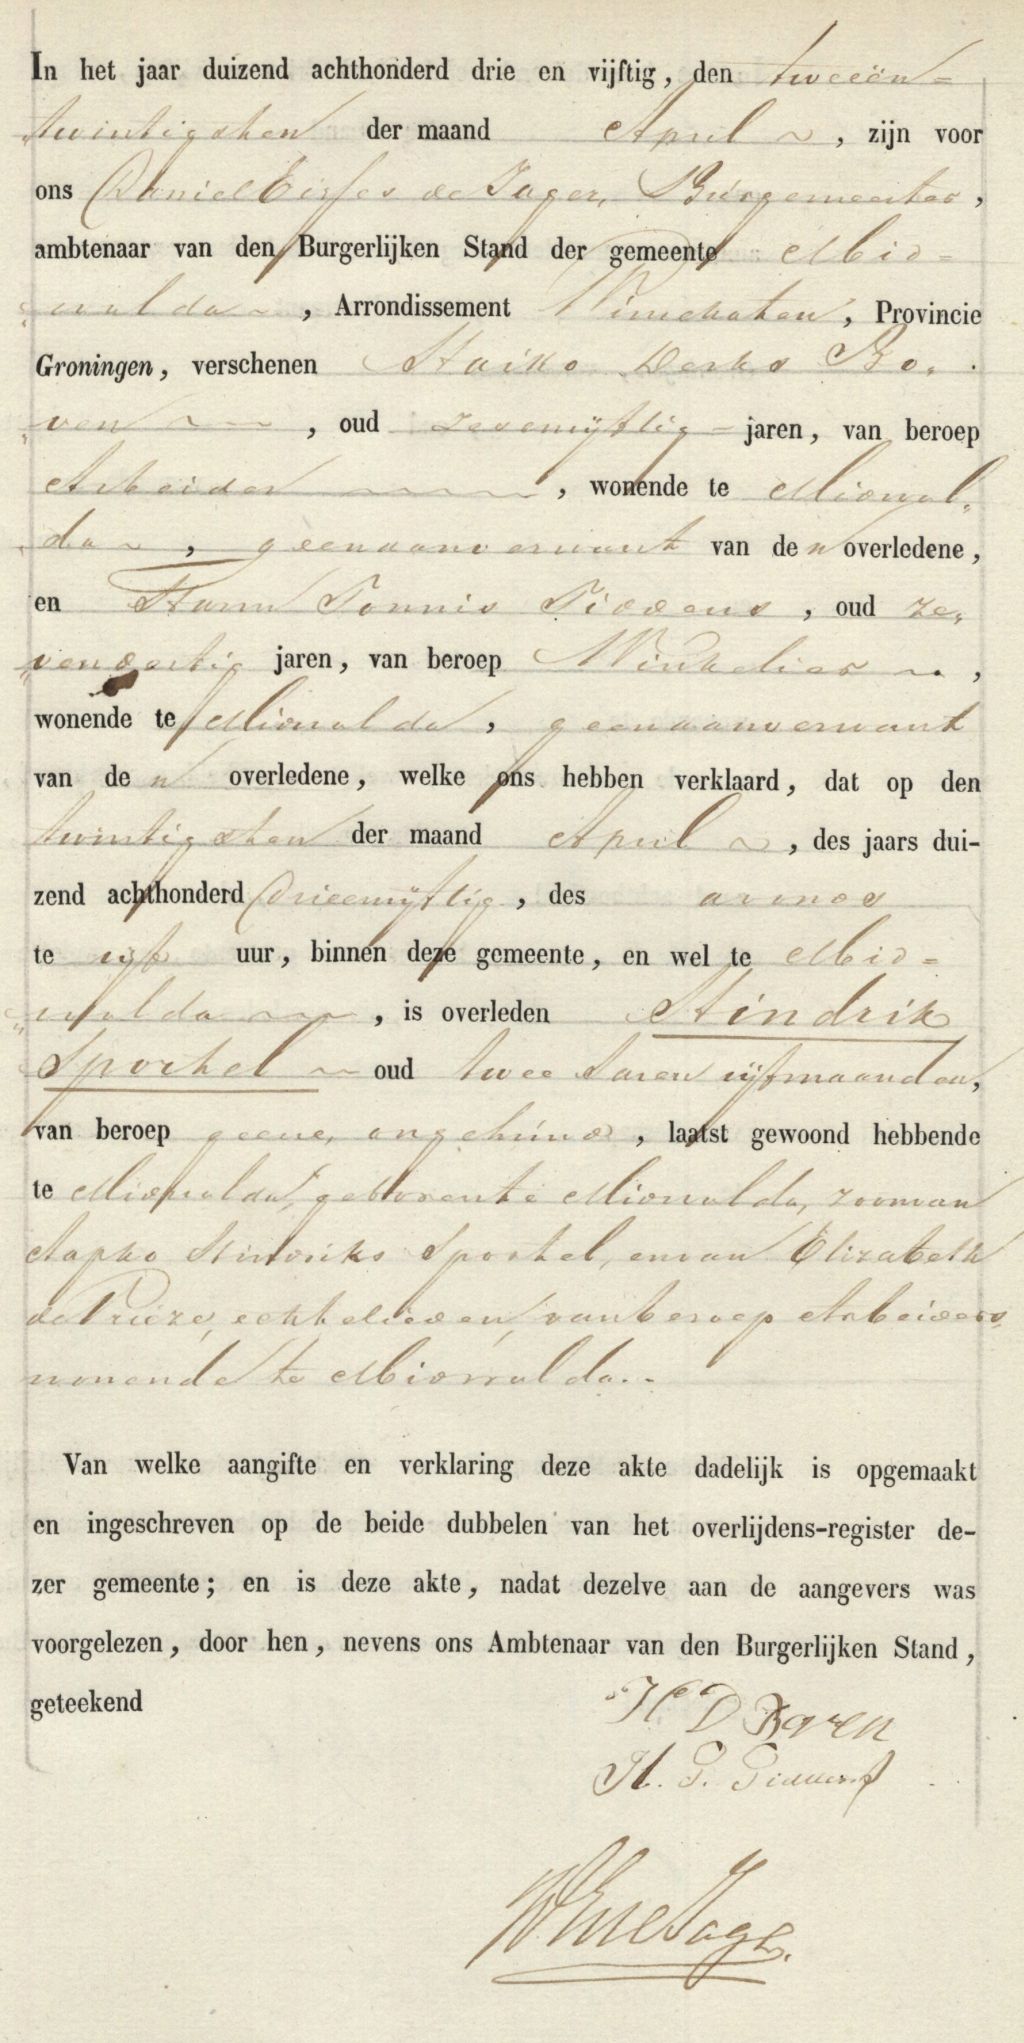 In het jaar duizend achthonderd drie en vijftig, den tweeën=
twintigsten der maand April ~, zijn voor
ons Daniel Eisses de Jager, Burgemeester,
ambtenaar van den Burgerlijken Stand der gemeente Mid=
wolda ~, Arrondissement Winschoten, Provincie
Groningen, verschenen Haiko Derks Bo„
„ven ~~, oud zesenvijftig jaren, van beroep
Arbeider ~~~~, wonende te Midwol„
„da ~, geenaanverwant van den overledene,
en Harm Tonnis Tiddens, oud ze„
„vendertig jaren, van beroep Winkelier ~,
wonende te Midwolda, geenaanverwant
van den overledene, welke ons hebben verklaard, dat op den
twintigsten der maand April ~, des jaars dui-
zend achthonderd drieenvijftig, des avonds
te vijf uur, binnen deze gemeente, en wel te Mid=
„wolda ~~, is overleden Hindrik
Sportel ~ oud twee Jaren vijfmaanden,
van beroep geene, ongehuwd, laatst gewoond hebbende
te Midwolda, geboren te Midwolda, zoon van
Aapko Hindriks Sportel, en van Elizabeth
de Vrieze, echtelieden, van beroep Arbeiders,
wonende te Midwolda.
Van welke aangifte en verklaring deze akte dadelijk is opgemaakt
en ingeschreven op de beide dubbelen van het overlijdens-register de-
zer gemeente; en is deze akte, nadat dezelve aan de aangevers was
voorgelezen, door hen, nevens ons Ambtenaar van den Burgerlijken Stand,
geteekend
H D Boven
H. T. Tiddens
DE de Jager.